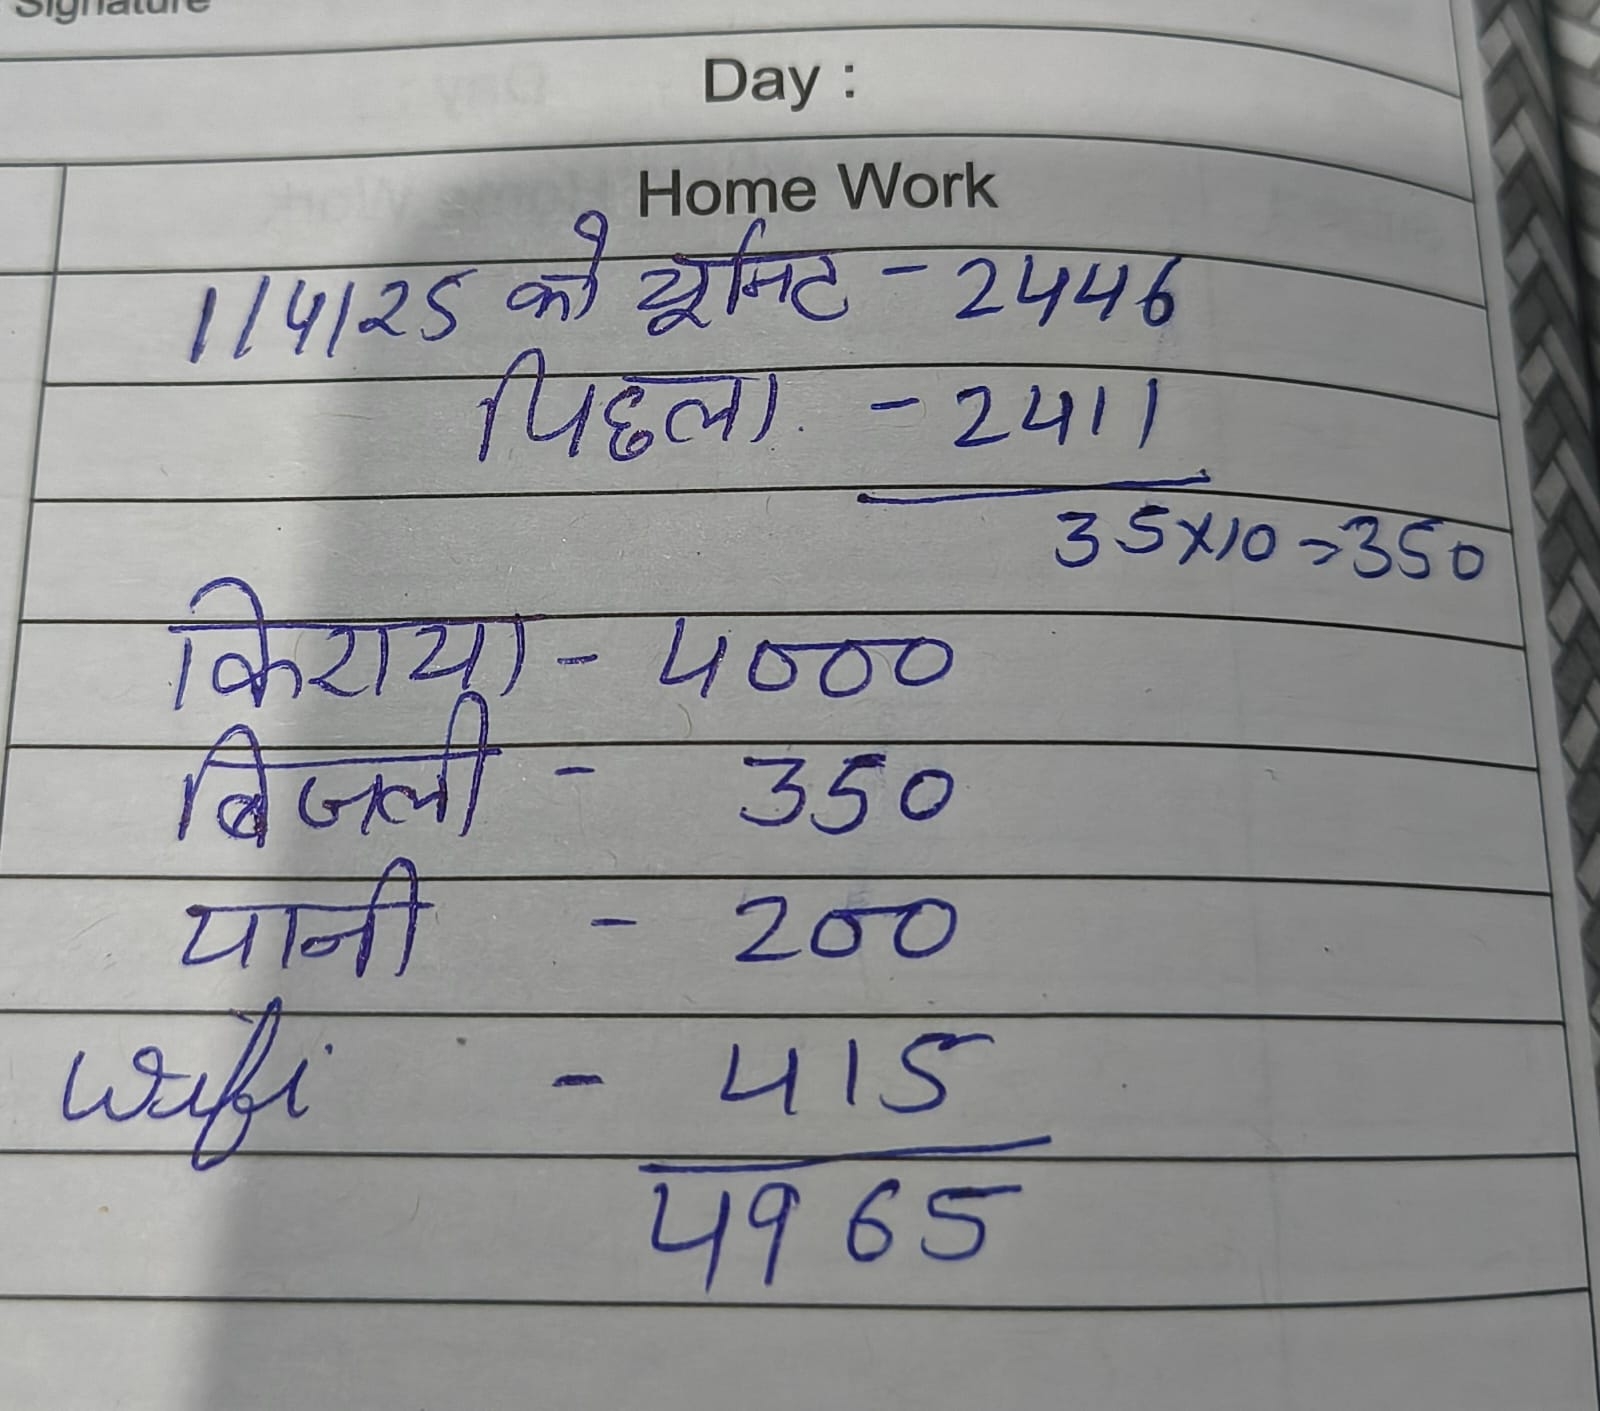 Signature
Day :
Home Work
1/4/25 को यूनिट - 2446
पिछला - 2411
35×10=350
किराया - 4000
बिजली - 350
पानी - 200
Wifi - 415
4965